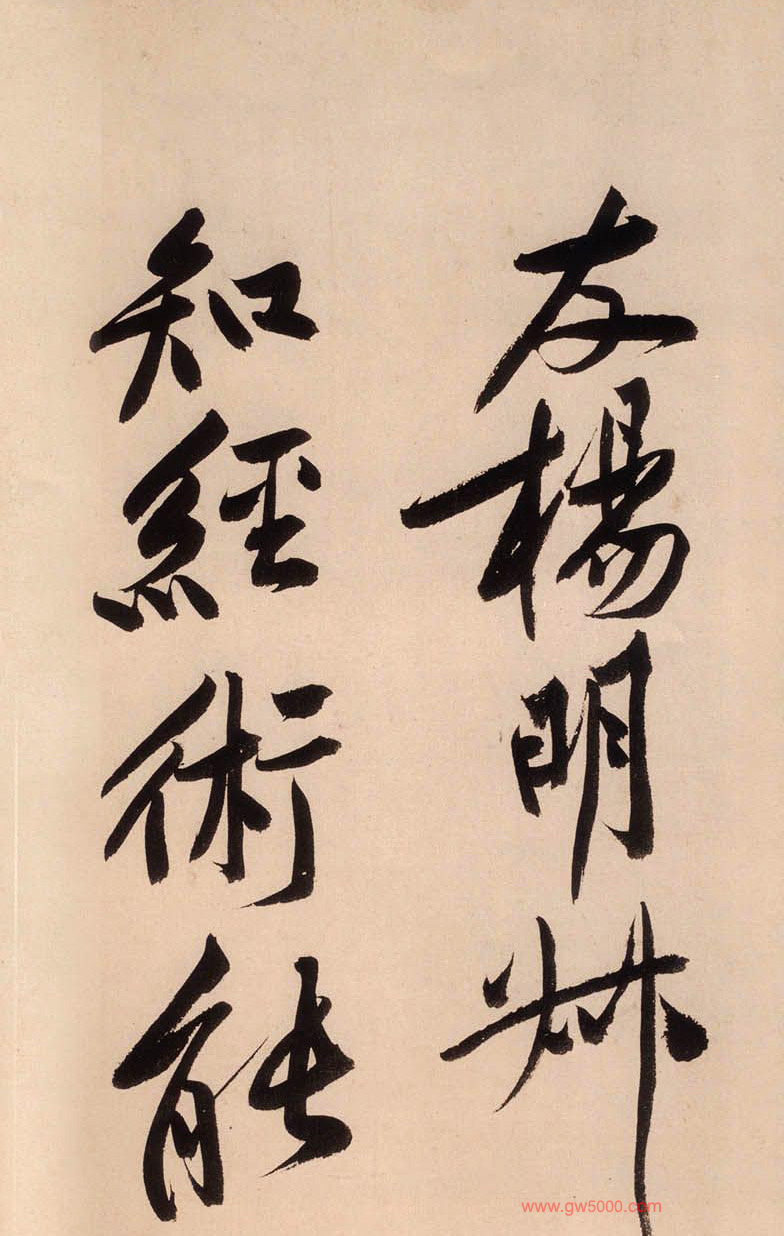 友楊明叔
知經術能
www.gw5000.com